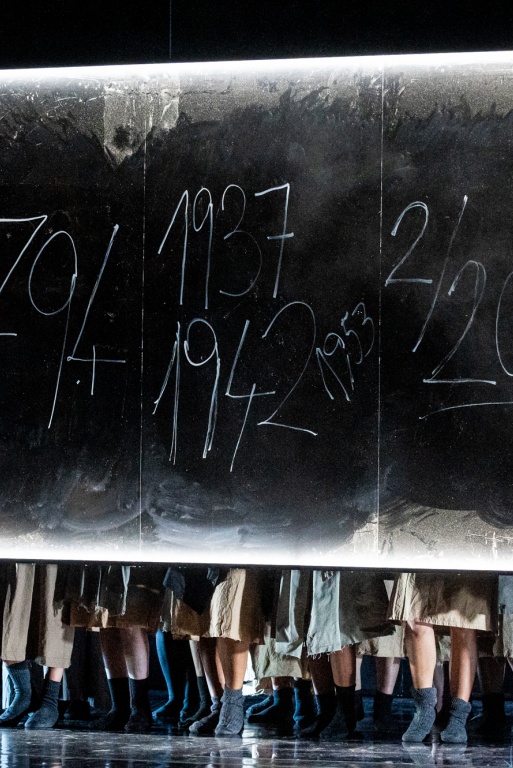 794
1937
1942 1953
2/2